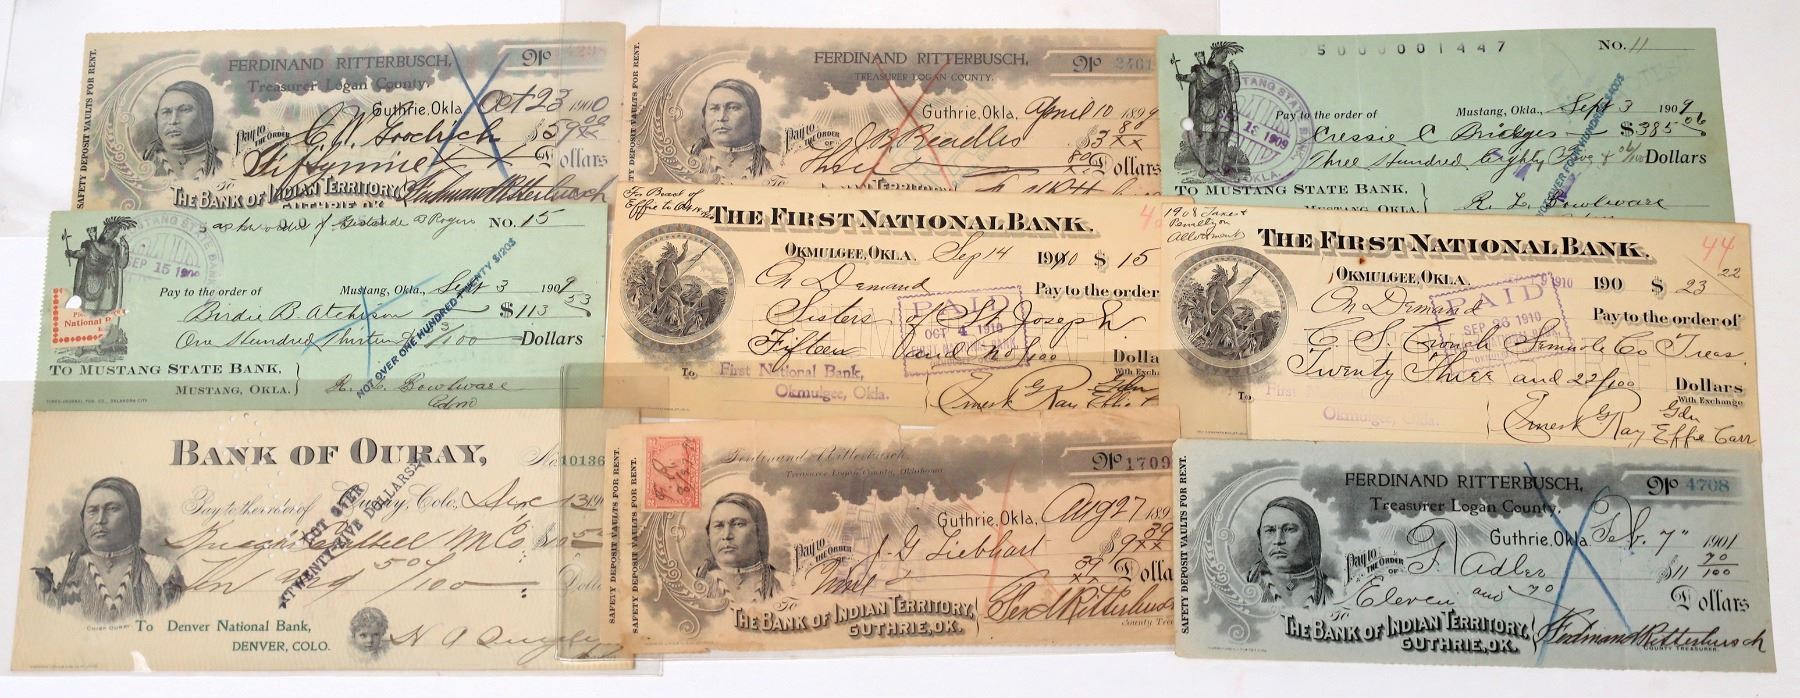 SAFETY DEPOSIT VAULTS FOR RENT.
FERDINAND RITTERBUSCH,
Treasurer Logan County.
No 4298
Guthrie, Okla. Oct 23 1900
Pay to THE ORDER OF C W Goodrich $59 00/xx
Fifty nine Dollars
To THE BANK OF INDIAN TERRITORY,
Ferdinand Ritterbusch
SAFETY DEPOSIT VAULTS FOR RENT.
FERDINAND RITTERBUSCH,
TREASURER LOGAN COUNTY.
No 2461
Guthrie, Okla. April 10 1899
Pay to THE ORDER OF J B Beadles $3 80/xx
Three 80 Dollars
To THE BANK OF INDIAN TERRITORY,
5000001447
No. 11
MUSTANG STATE BANK
OKLA.
Mustang, Okla., Sept 3 1909
Pay to the order of Cressie C Bridges $385 06
Three Hundred Eighty Five & 06/100 Dollars
TO MUSTANG STATE BANK,
MUSTANG, OKLA.
R. L. Bowlware
NOT OVER FOUR HUNDRED $400$
of Gertrude B Rogers
No. 15
MUSTANG STATE BANK
SEP 15
Mustang, Okla., Sept 3 1909
Pay to the order of Birdie B. Atcheson $113 53
One Hundred Thirteen 53/100 Dollars
TO MUSTANG STATE BANK,
MUSTANG, OKLA.
R. L. Bowlware
Gdn
NOT OVER ONE HUNDRED TWENTY $120$
National
For Board of
Effie to
THE FIRST NATIONAL BANK.
OKMULGEE, OKLA. Sep 14 1910 $15
On Demand Pay to the order
Sisters of St Joseph
Fifteen and no/100 Dolla
With Exch
PAID
OCT 4 1910
FIRST NATIONAL BANK
To First National Bank,
Okmulgee, Okla.
Ernest G Ray Gdn
Effie
1908 Taxes &
Penalty on
Allotment
44
THE FIRST NATIONAL BANK.
OKMULGEE, OKLA. 190 $23 22
On Demand Pay to the order of
C S Crouch Seminole Co Treas.
Twenty Three and 22/100 Dollars
With Exchange
PAID
SEP 26 1910
To First National Bank,
Okmulgee, Okla.
Ernest G Ray Gdn
Effie Carr
BANK OF OURAY,
No 10136
Ouray, Colo., Dec 13 190
Pay to the order of
Ten and 50/100 Dolla
NOT OVER
TWENTY-FIVE DOLLARS $25$
CHIEF OURAY
To Denver National Bank,
DENVER, COLO.
SAFETY DEPOSIT VAULTS FOR RENT.
SAFETY DEPOSIT VAULTS FOR RENT.
Ferdinand Ritterbusch
Treasurer Logan County, Oklahoma
No 1709
Guthrie, Okla. Aug 27 189
Pay to THE ORDER OF J. G. Liebhart $9 39/xx
Nine 39/xx Dolla
To THE BANK OF INDIAN TERRITORY,
GUTHRIE, OK.
Ferd Ritterbusch
County Trea
SAFETY DEPOSIT VAULTS FOR RENT.
FERDINAND RITTERBUSCH,
Treasurer Logan County.
No 4708
Guthrie, Okla. Feb. 7" 1901
Pay to THE ORDER OF F. Adler $11 70/100
Eleven and 70 Dollars
To THE BANK OF INDIAN TERRITORY,
GUTHRIE, OK.
Ferdinand Ritterbusch
COUNTY TREASURER.